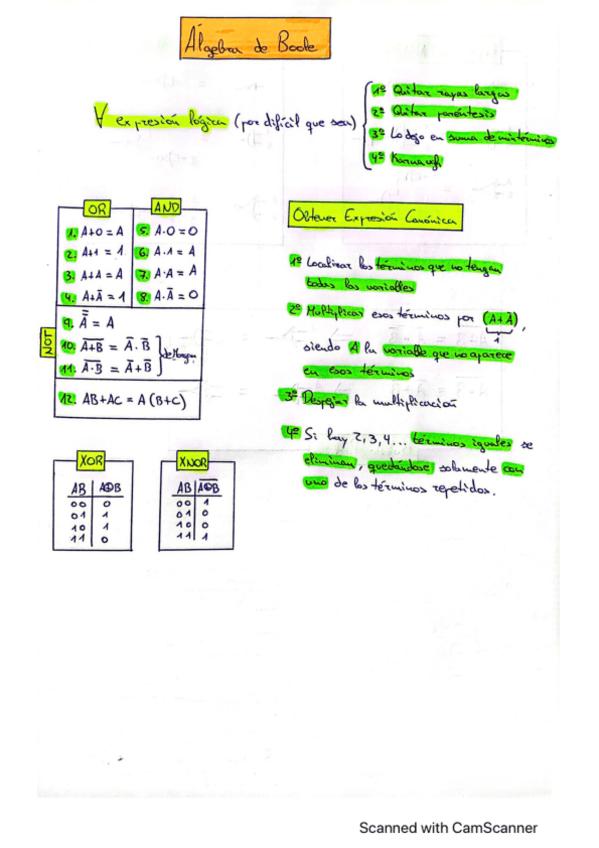 Álgebra de Boole
∀ expresión lógica (por difícil que sea)
1º Quitar rayas largas
2º Quitar paréntesis
3º Lo dejo en suma de mintérminos
4º Karnaugh
OR
AND
1. A+0 = A
2. A+1 = 1
3. A+A = A
4. A+Ā = 1
5. A·0 = 0
6. A·1 = A
7. A·A = A
8. A·Ā = 0
NOT
9. A̿ = A
10. A̅+̅B̅ = Ā · B̅
11. A̅·̅B̅ = Ā + B̅
de Morgan
12. AB+AC = A(B+C)
XOR
AB | A⊕B
00 | 0
01 | 1
10 | 1
11 | 0
XNOR
AB | A̅⊕̅B̅
00 | 1
01 | 0
10 | 0
11 | 1
Obtener Expresión Canónica
1º Localizar los términos que no tengan
todas las variables
2º Multiplicar esos términos por (A+Ā),
1
siendo A la variable que no aparece
en esos términos
3º Despejar la multiplicación
4º Si hay 2,3,4... términos iguales se
eliminan, quedándose solamente con
uno de los términos repetidos.
Scanned with CamScanner